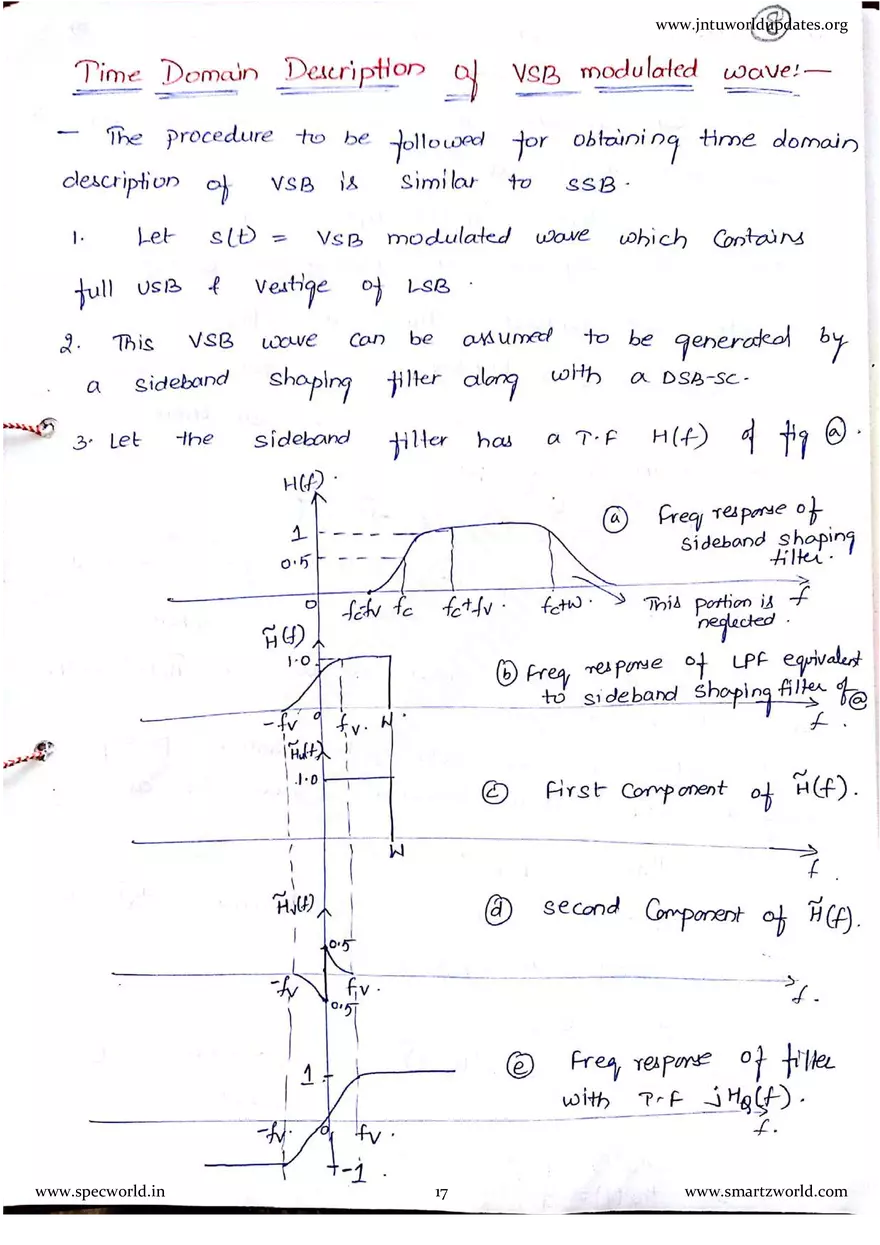 www.jntuworldupdates.org
8
Time Domain Description of VSB modulated wave:-
- The procedure to be followed for obtaining time domain
description of VSB is similar to SSB.
1. Let s(t) = VSB modulated wave which Contains
full USB & Vestige of LSB.
2. This VSB wave can be assumed to be generated by
a sideband shaping filter along with a DSB-SC.
3. Let the sideband filter has a T.F H(f) of fig (a).
H(f)
1
0.5
0
fc-fv fc fc+fv. fc+w.
(a) freq response of
sideband shaping
filter.
This portion is
neglected.
f
H̃(f)
1.0
-fv 0 fv. W.
(b) Freq response of LPF equivalent
to sideband shaping filter of (a)
f.
H̃u(f)
1.0
W
(c) First component of H̃(f).
f.
H̃v(f)
0.5
-fv fv.
0.5
(d) second Component of H̃(f).
f.
1
-fv. 0 fv.
-1.
(e) Freq response of filter
with T.F jHQ(f).
f.
www.specworld.in
17
www.smartzworld.com